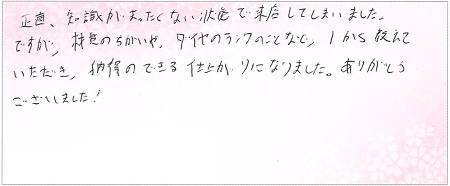 正直、知識がまったくない状態で来店してしまいました。
ですが、材質のちがいや、ダイヤのランクのことなど、1から教えて
いただき、納得のできる仕上がりになりました。ありがとう
ございました!